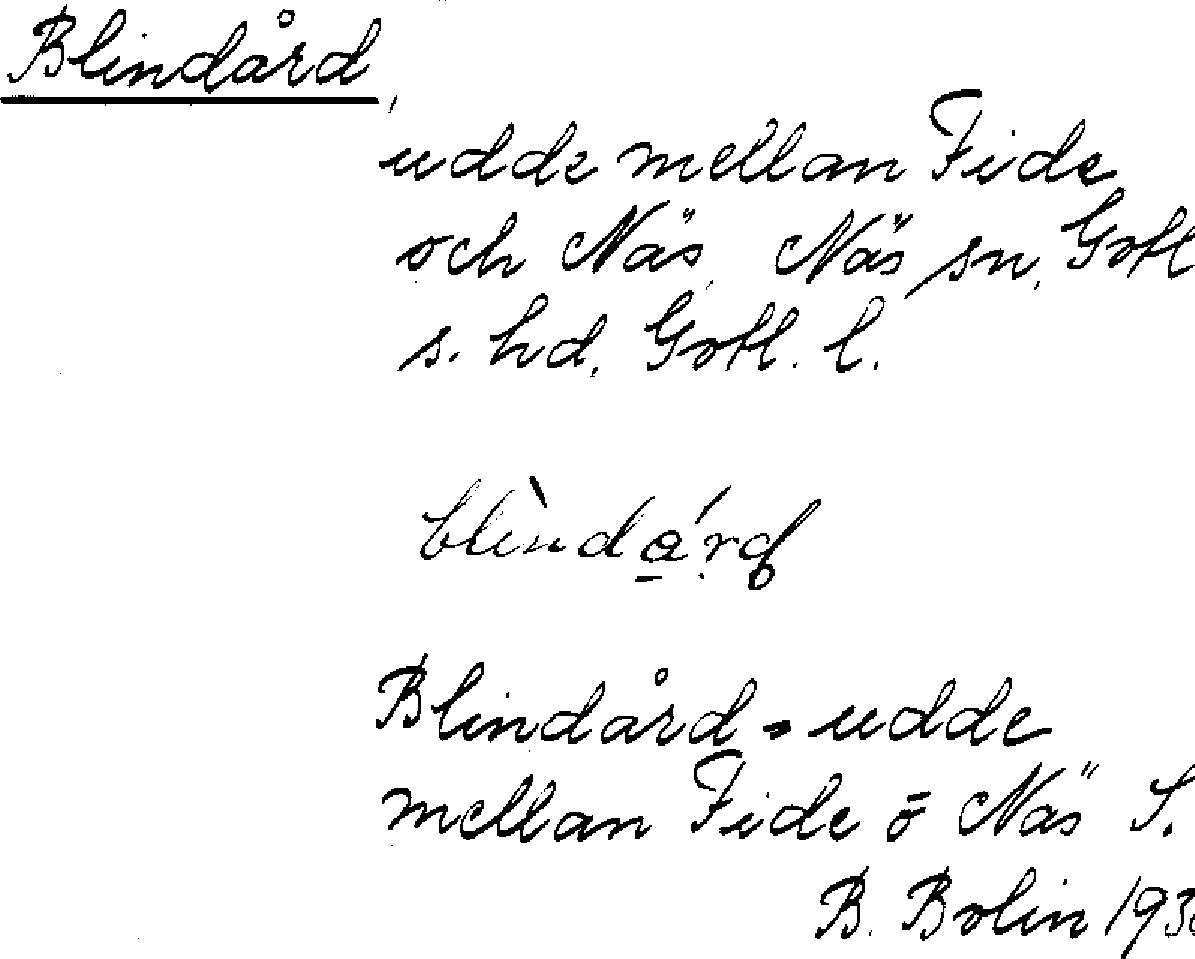 Blindård,
udde mellan Fide
och Näs, Näs sn, Gotl
s. hd, Gotl. l.
Blindård udde
mellan Fide ō Näs S.
B. Bolin